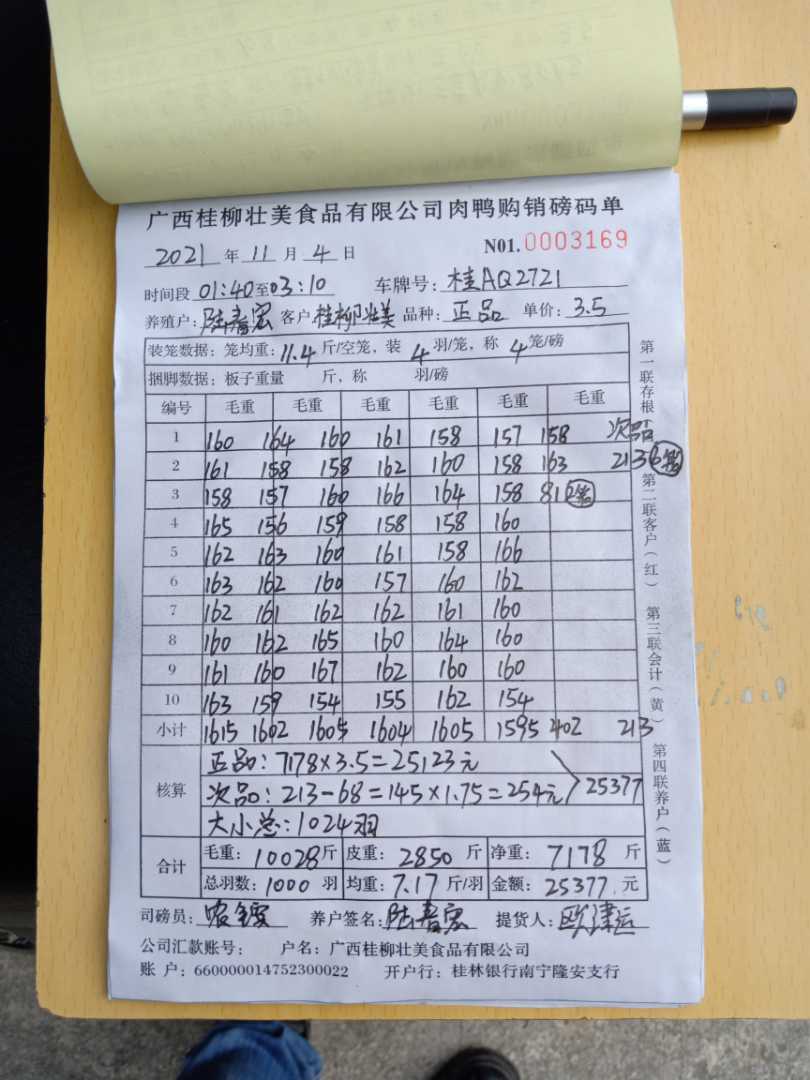 广西桂柳壮美食品有限公司肉鸭购销磅码单
2021年11月4日 N01.0003169
时间段01:40至03:10 车牌号:桂AQ2721
养殖户:陆春宏 客户桂柳壮美 品种:正品 单价:3.5
装笼数据:笼均重:11.4斤/空笼,装4羽/笼,称4笼/磅
捆脚数据:板子重量 斤,称 羽/磅
编号 毛重 毛重 毛重 毛重 毛重 毛重
1 160 164 160 161 158 157 158 次品
2 161 158 158 162 160 158 163 213 6笼
3 158 157 160 166 164 158 81 2笼
4 165 156 159 158 158 160
5 162 163 160 161 158 166
6 163 162 160 157 160 162
7 162 161 162 162 161 160
8 160 162 165 160 164 160
9 161 160 167 162 160 160
10 163 159 154 155 162 154
小计 1615 1602 1605 1604 1605 1595 402 213
核算
正品:7178×3.5=25123元
次品:213-68=145×1.75=254元 25377
大小总:1024羽
合计
毛重:10028斤 皮重:2850斤 净重:7178斤
总羽数:1000羽 均重:7.17斤/羽 金额:25377元
司磅员: 养户签名:陆春宏 提货人:
公司汇款账号: 户名:广西桂柳壮美食品有限公司
账 户:660000014752300022 开户行:桂林银行南宁隆安支行
第一联存根
第二联客户(红)
第三联会计(黄)
第四联养户(蓝)